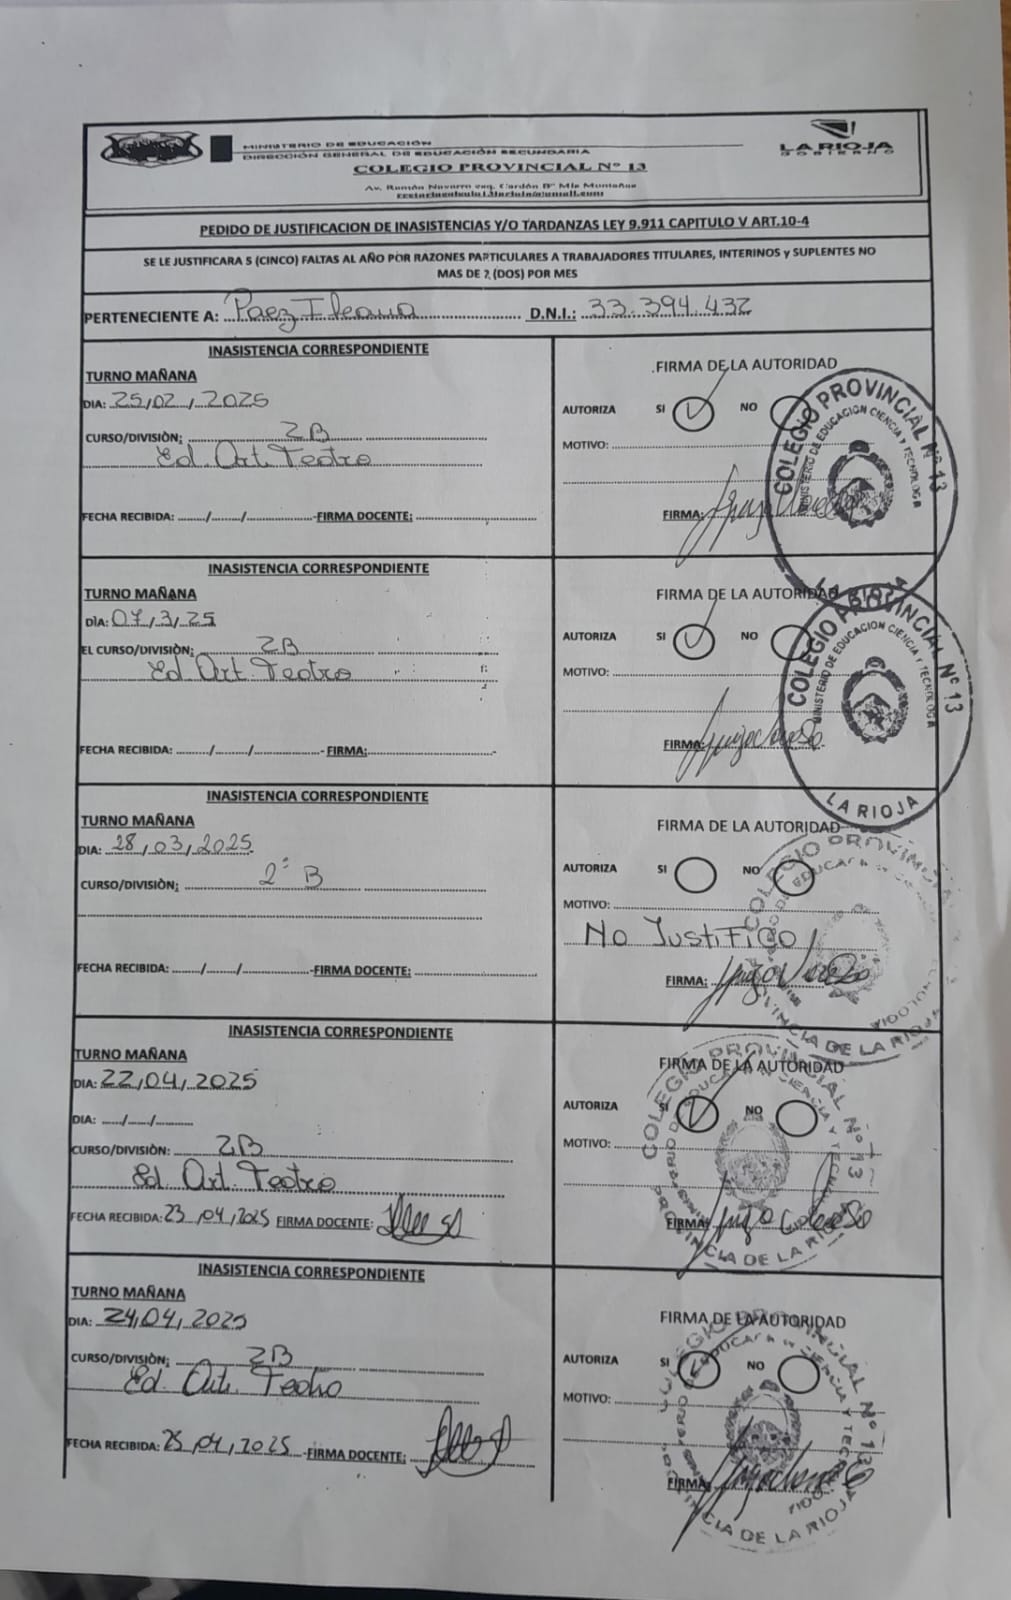 MINISTERIO DE EDUCACIÓN
DIRECCIÓN GENERAL DE EDUCACIÓN SECUNDARIA
COLEGIO PROVINCIAL N° 13
Av. Ramón Navarro esq. Cardón B° Mis Montañas
LA RIOJA
GOBIERNO
PEDIDO DE JUSTIFICACION DE INASISTENCIAS Y/O TARDANZAS LEY 9.911 CAPITULO V ART.10-4
SE LE JUSTIFICARA 5 (CINCO) FALTAS AL AÑO POR RAZONES PARTICULARES A TRABAJADORES TITULARES, INTERINOS y SUPLENTES NO
MAS DE 2 (DOS) POR MES
PERTENECIENTE A: Paez Ileana D.N.I.: 33.394.432
INASISTENCIA CORRESPONDIENTE
TURNO MAÑANA
DIA: 25/02/2025
CURSO/DIVISIÒN: 2B
Ed. Art. Teatro
FECHA RECIBIDA: ......../......../................-FIRMA DOCENTE:
FIRMA DE LA AUTORIDAD
AUTORIZA SI NO
MOTIVO:
FIRMA:
COLEGIO PROVINCIAL N° 13
MINISTERIO DE EDUCACION CIENCIA Y TECNOLOGIA
LA RIOJA
INASISTENCIA CORRESPONDIENTE
TURNO MAÑANA
DÌA: 07/3/25
EL CURSO/DIVISIÒN: 2B
Ed. Art. Teatro
FECHA RECIBIDA: ........./........./................- FIRMA:
FIRMA DE LA AUTORIDAD
AUTORIZA SI NO
MOTIVO:
FIRMA:
COLEGIO PROVINCIAL N° 13
MINISTERIO DE EDUCACION CIENCIA Y TECNOLOGIA
LA RIOJA
INASISTENCIA CORRESPONDIENTE
TURNO MAÑANA
DIA: 28/03/2025
CURSO/DIVISIÒN: 2° B
FECHA RECIBIDA: ......./......./................-FIRMA DOCENTE:
FIRMA DE LA AUTORIDAD
AUTORIZA SI NO
MOTIVO:
No Justifico
FIRMA:
COLEGIO PROVINCIAL
PROVINCIA DE LA RIOJA
INASISTENCIA CORRESPONDIENTE
TURNO MAÑANA
DIA: 22/04/2025
DIA: ...../...../..........
CURSO/DIVISIÒN: 2B
Ed. Art. Teatro
FECHA RECIBIDA: 23/04/2025 FIRMA DOCENTE:
FIRMA DE LA AUTORIDAD
AUTORIZA SI NO
MOTIVO:
FIRMA:
COLEGIO PROVINCIAL N° 13
PROVINCIA DE LA RIOJA
INASISTENCIA CORRESPONDIENTE
TURNO MAÑANA
DIA: 24/04/2025
CURSO/DIVISIÒN: 2B
Ed. Art. Teatro
FECHA RECIBIDA: 25/04/2025 -FIRMA DOCENTE:
FIRMA DE LA AUTORIDAD
AUTORIZA SI NO
MOTIVO:
FIRMA:
COLEGIO PROVINCIAL N° 13
PROVINCIA DE LA RIOJA